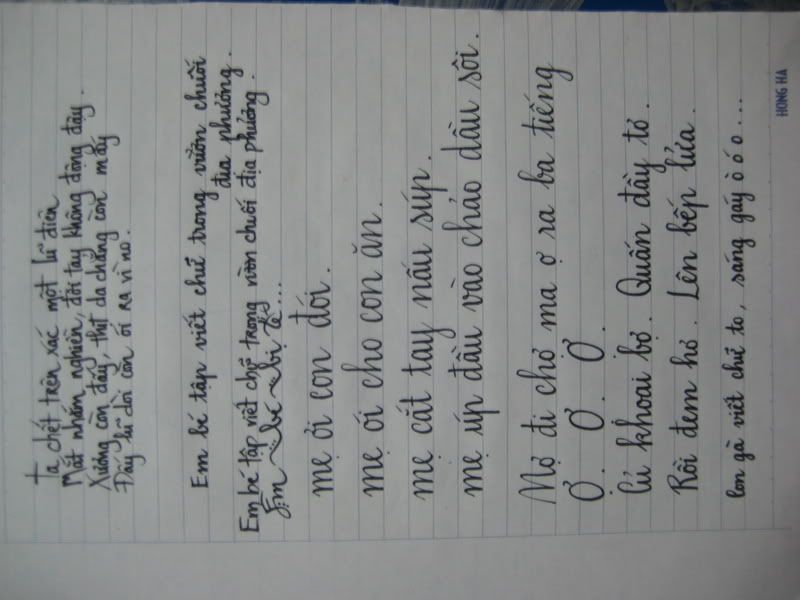 Ta chết trên xác một lũ điên
Mắt nhắm nghiền, đôi tay không động đậy.
Xương còn đấy, thịt da chẳng còn mấy
Đầy lũ dòi còn ói ra vì no.
Em bé tập viết chữ trong vườn chuối
địa phương.
Em bé tập viết chữ trong vườn chuối địa phương.
Em bé bị tê...
mẹ ơi con đói.
mẹ ói cho con ăn.
mẹ cắt tay nấu súp.
mẹ úp đầu vào chảo dầu sôi.
Mợ đi chợ ma ợ ra ba tiếng
Ơ. Ơ. Ơ.
Củ khoai bở. Quấn đầy tơ.
Rồi đem hơ. Lên bếp lửa.
con gà viết chữ to, sáng gáy ò ó o....
HONG HA